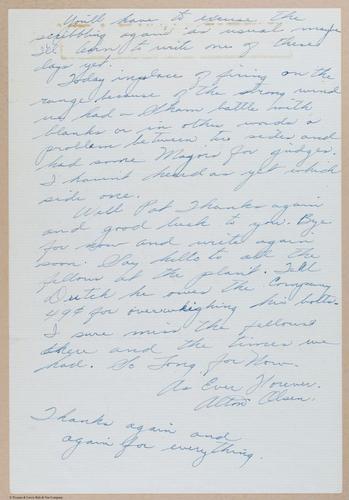 You'll have to excuse the
scribbling again as usual maybe
I'll learn to write one of these
days yet.
Today inplace of firing on the
range because of the strong wind
we had a Sham battle with
blanks or in other words a
problem between two sides and
had some Majors for judges.
I havent heard as yet which
side one.
Well Pat Thanks again
and good luck to you. Bye
for now and write again
soon. Say hello to all the
fellows at the plant. Tell
Dutch he owes the Company
49¢ for overweighing his bolts.
I sure miss the fellows
there and the times we
had. So Long for Now.
As Ever Forever.
Alton Olsen.
Thanks again and
again for everything.